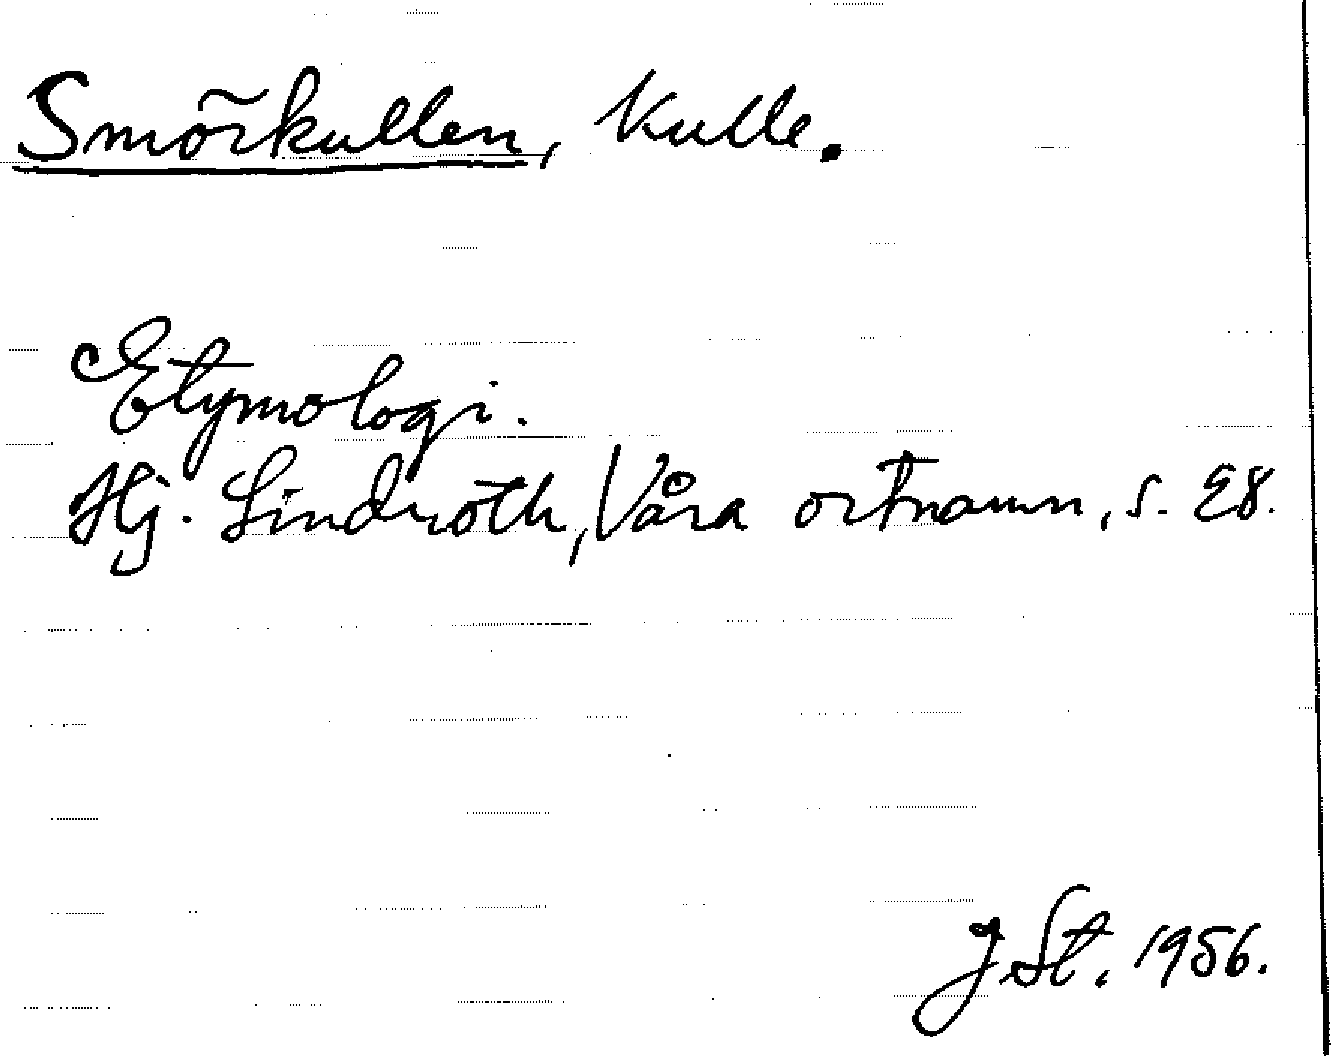 Smörkullen, kulle.
Etymologi.
Hj. Lindroth, Våra ortnamn, s. 28.
J.St. 1956.